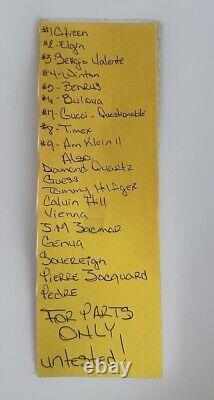 #1 Citizen
#2 - Elgin
#3 Sergio Valente
#4 - Winton
#5 - Benrus
#6 - Bulova
#7 - Gucci - Questionable
#8 - Timex
#9 - Ann Klein II
Also
Diamond Quartz
Guess
Tommy Hilfiger
Calvin Hill
Vienna
S.M Jacmar
Genva
Sovereign
Pierre Jacquard
Pedre
FOR PARTS
ONLY
untested!